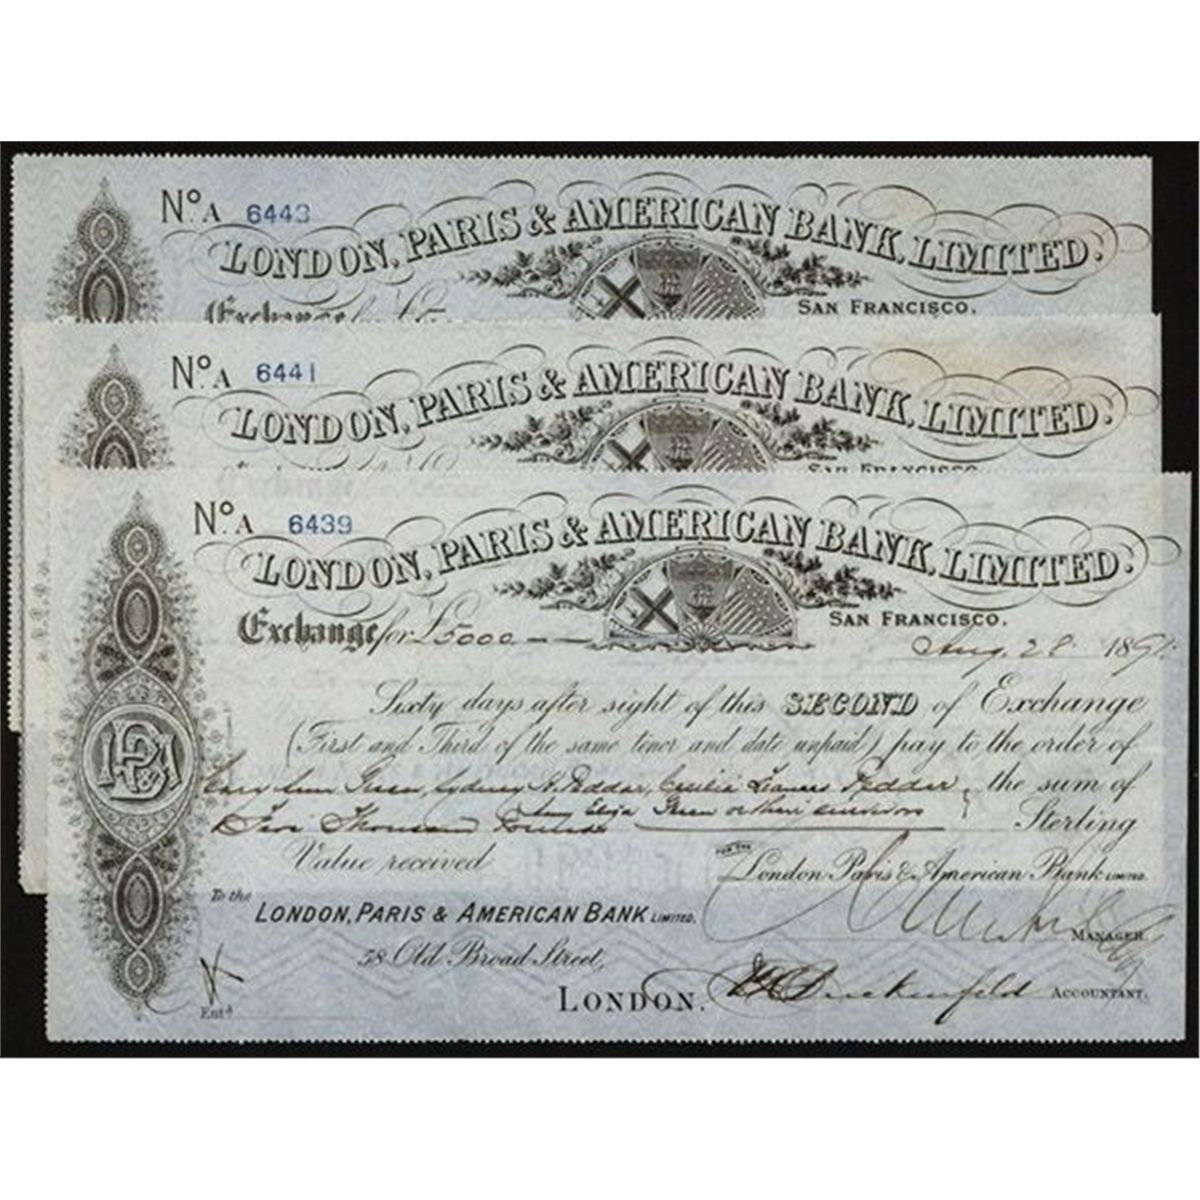 No. A 6443
LONDON, PARIS & AMERICAN BANK, LIMITED.
SAN FRANCISCO.
Exchange for £5
No. A 6441
LONDON, PARIS & AMERICAN BANK, LIMITED.
SAN FRANCISCO
Exchange
No. A 6439
LONDON, PARIS & AMERICAN BANK, LIMITED.
SAN FRANCISCO.
Exchange for £5000
Aug. 28 1891
Sixty days after sight of this SECOND of Exchange
(First and Third of the same tenor and date unpaid) pay to the order of
Mary Ann Green, Sydney H. Peddar, Cecilia Frances Peddar
Amy Eliza Green or their survivors
the sum of
Five Thousand Pounds
Sterling
Value received
FOR THE London Paris & American Bank LIMITED.
To the
LONDON, PARIS & AMERICAN BANK LIMITED.
MANAGER.
58 Old Broad Street,
LONDON.
ACCOUNTANT.
Entd.